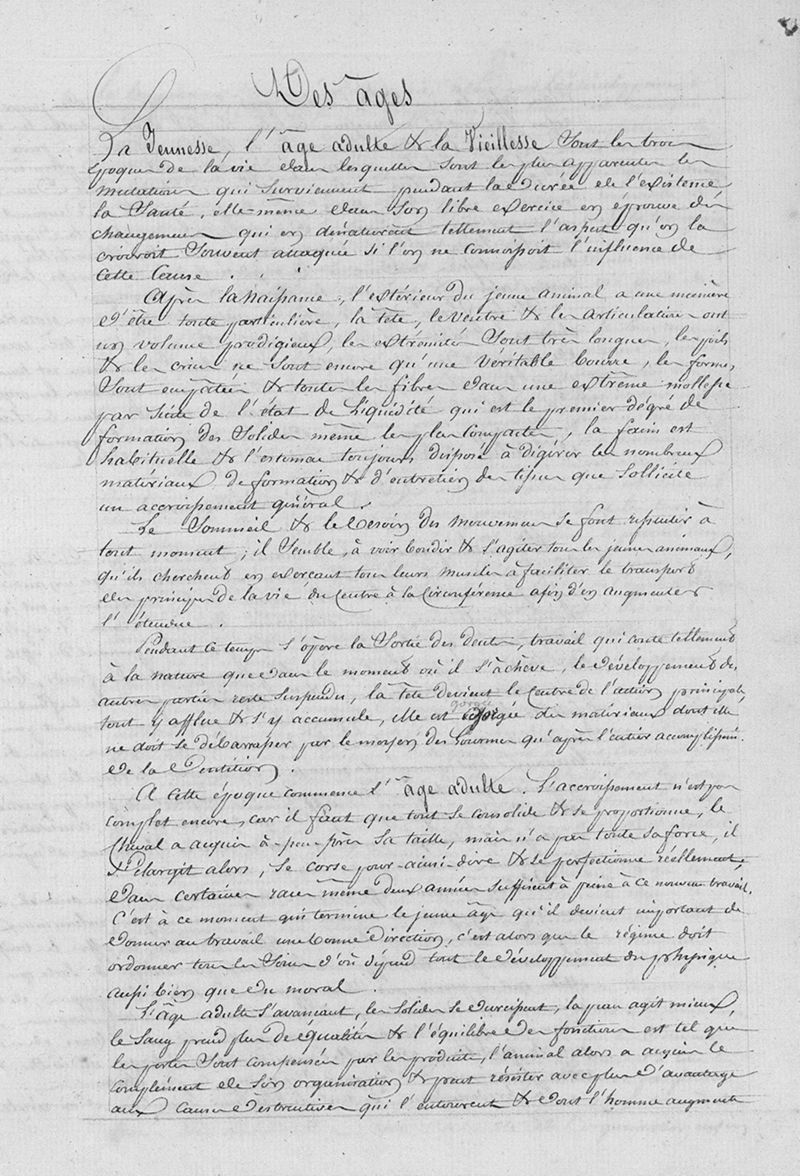 Des âges
La Jeunesse, l'âge adulte & la Vieillesse sont les trois
époques de la vie dans lesquelles sont les plus apparentes les
mutations qui surviennent pendant la durée de l'existence
la Santé, elle-même dans son libre exercice en éprouve des
changemens qui en dénaturent tellement l'aspect qu'on la
croiroit souvent attaquée si l'on ne connoissoit l'influence de
cette Cause.
Après la naissance, l'extérieur du jeune animal a une manière
d'être toute particulière, la tête, le ventre & les articulations ont
un volume prodigieux, les extrémités sont très longues, les poils
& les crins ne sont encore qu'une véritable bourre, les formes
sont empâtées & toutes les fibres dans une extrême mollesse
par suite de l'état de liquidité qui est le premier dégré de
formation des Solides même les plus Compactes, la faim est
habituelle & l'estomac toujours disposé à digérer les nombreux
matériaux de formation & d'entretien des tissus que sollicite
un accroissement général.
Le Sommeil & le besoin des mouvemens se font ressentir à
tout moment; il semble, à voir bondir & s'agiter tous les jeunes animaux,
qu'ils cherchent en exerçant tous leurs muscles à faciliter le transport
des principes de la vie du Centre à la Circonférence afin d'en augmenter
l'étendue.
Pendant ce temps s'opère la Sortie des dents, travail qui coute tellement
à la nature que dans le moment où il s'achève, le développement des
autres parties reste suspendu, la tête devient le Centre de l'action principale,
tout y afflue & s'y accumule, elle est gorgée des matériaux dont elle
ne doit se débarrasser par le moyen des Gourmes qu'après l'entier accomplissem.
de la Dentition.
A cette époque commence l'âge adulte. L'accroissement n'est pas
complet encore, car il faut que tout se consolide & se proportionne, le
Cheval a acquis à-peu-près sa taille, mais n'a pas toute sa force, il
s'élargit alors, se corse pour-ainsi-dire & se perfectionne réellement,
dans certaines races même deux années suffisent à peine à ce nouveau travail.
C'est à ce moment qui termine le jeune âge qu'il devient important de
donner au travail une bonne direction, c'est alors que le régime doit
ordonner tous les Soins d'où dépend tout le développement du physique
aussi bien que du moral.
L'âge adulte s'avançant, les solides se durcissent, la peau agit mieux,
le Sang prend plus de qualités & l'équilibre des fonctions est tel que
les pertes sont compensées par les produits, l'animal alors a acquis le
complément de son organisation & peut résister avec plus d'avantage
aux causes destructives qui l'entourent & dont l'homme augmente